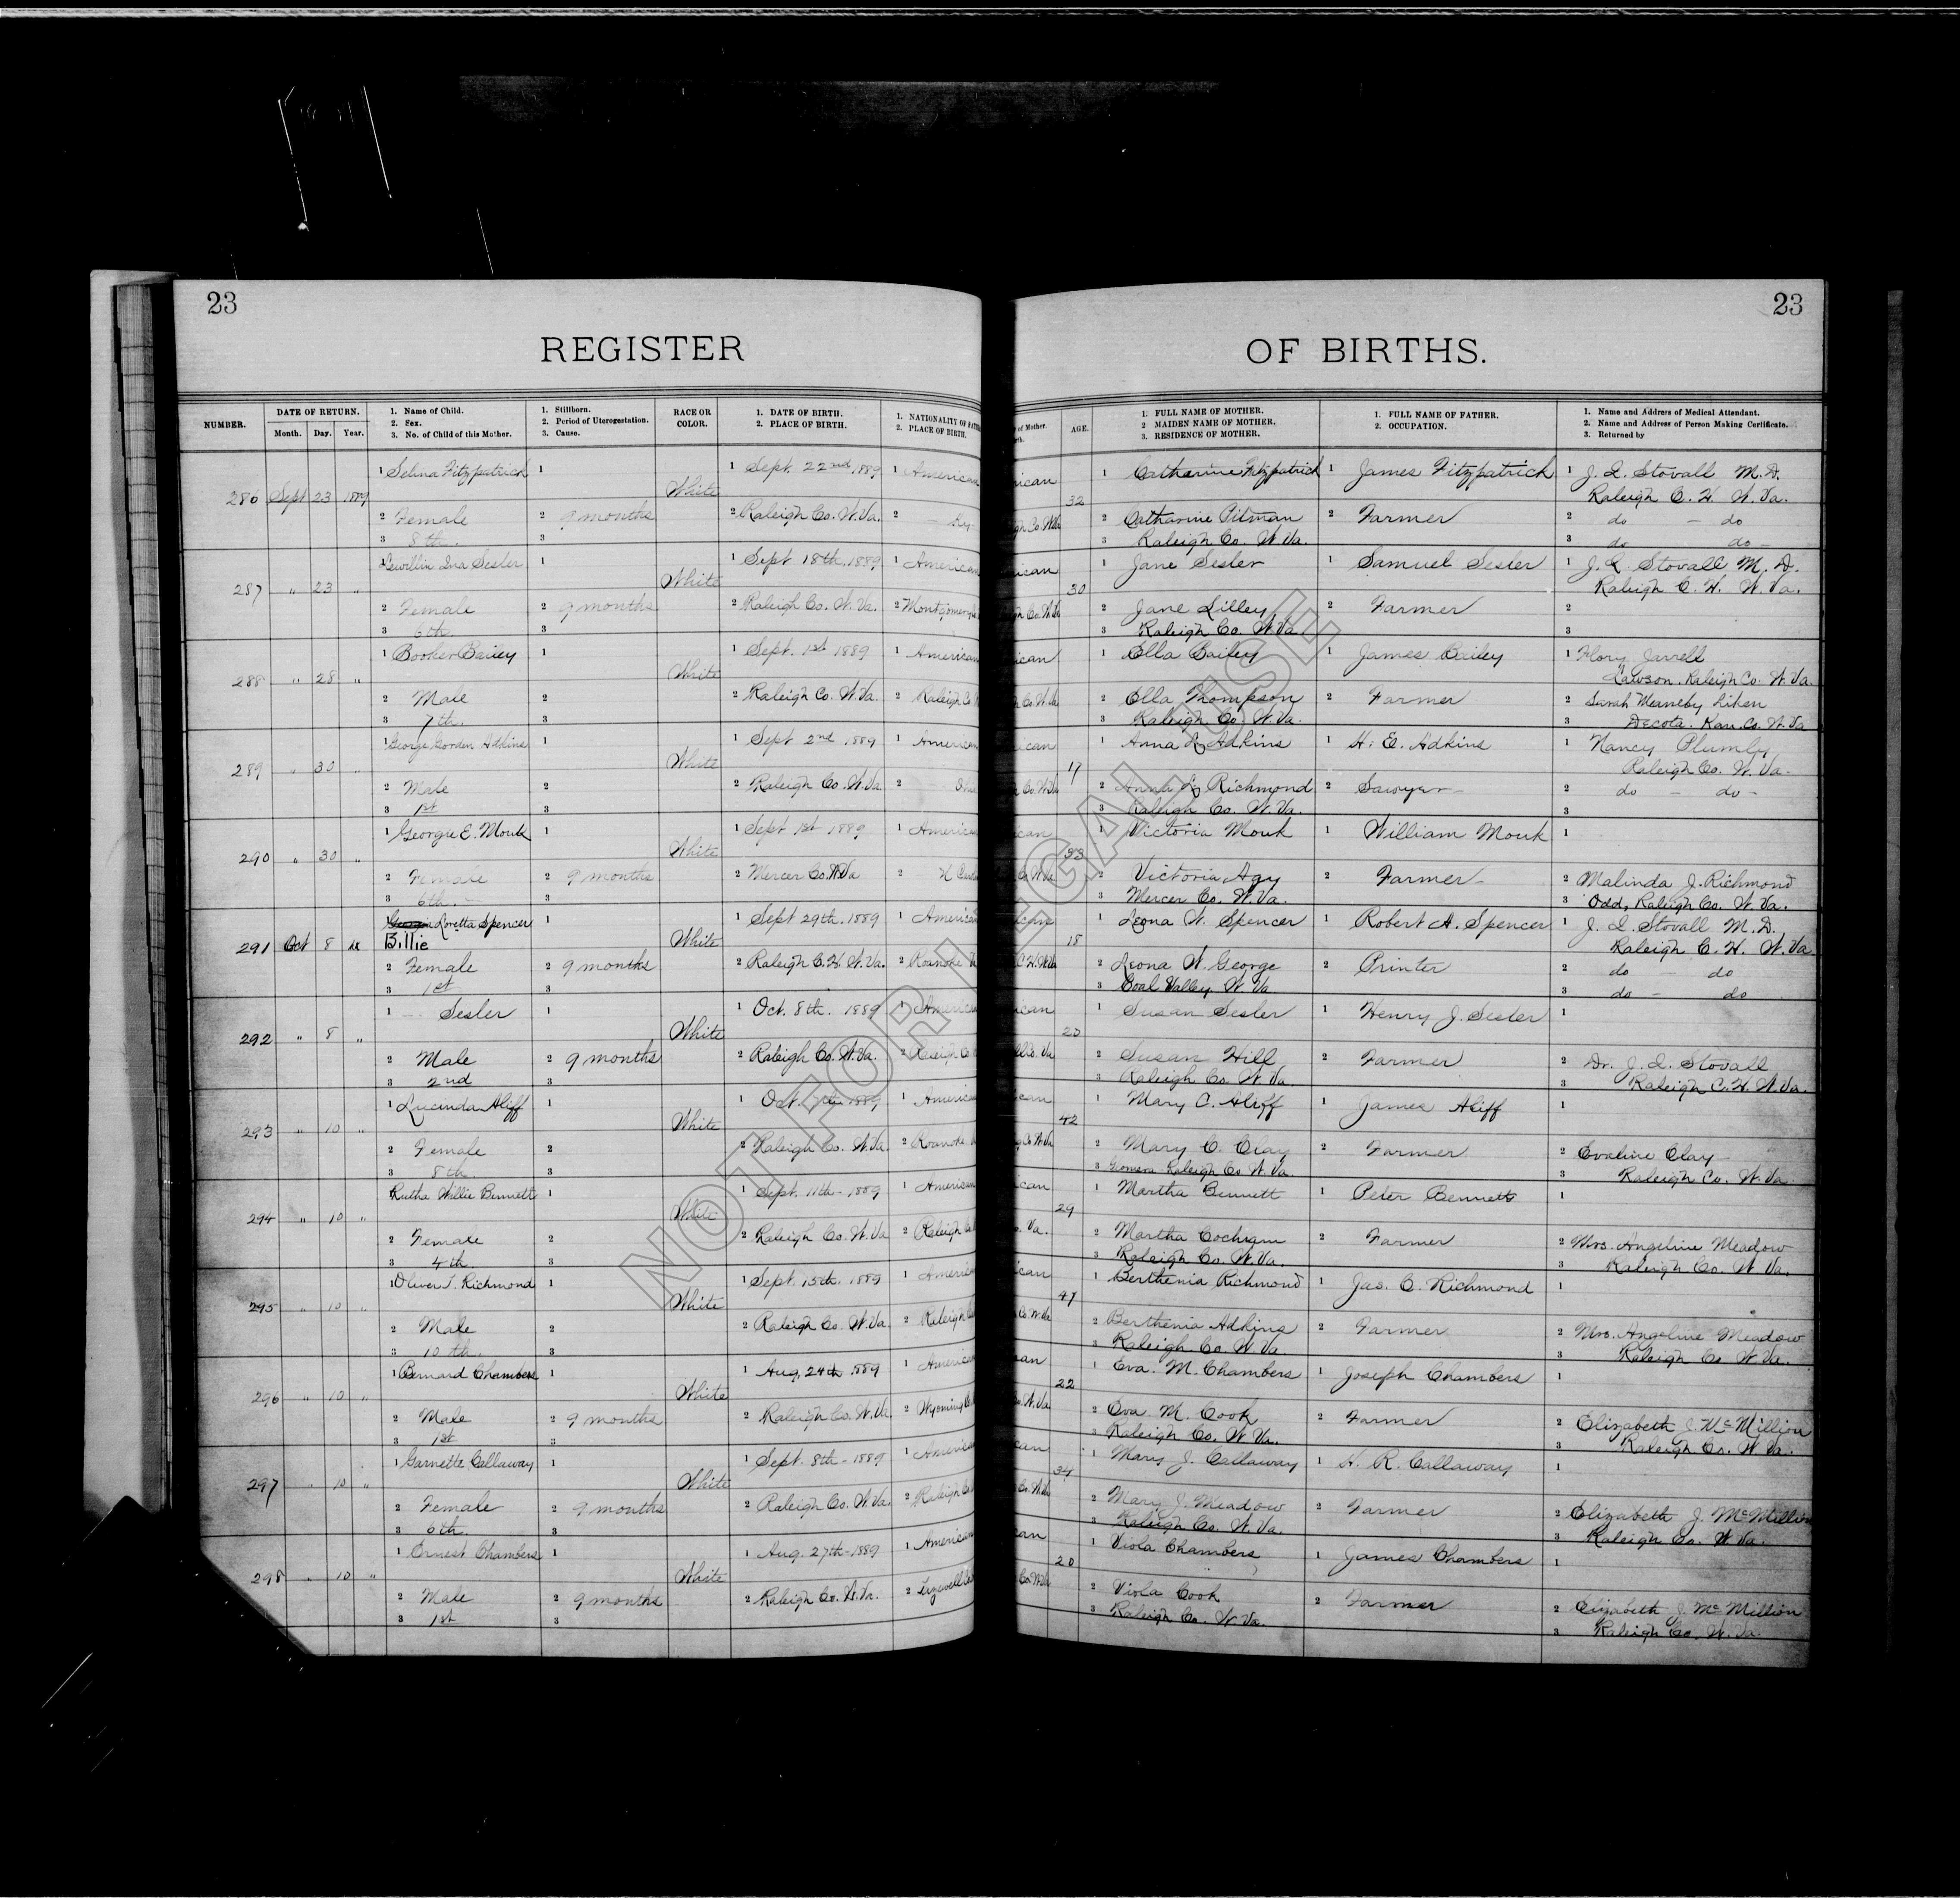 23
REGISTER
NUMBER.
DATE OF RETURN.
Month. Day. Year.
1. Name of Child.
2. Sex.
3. No. of Child of this Mother.
1. Stillborn.
2. Period of Uterogestation.
3. Cause.
RACE OR
COLOR.
1. DATE OF BIRTH.
2. PLACE OF BIRTH.
1. NATIONALITY OF
2. PLACE OF BIRTH.
1 Selina Fitzpatrick 1 1 Sept. 22nd, 1889 1 American
286 Sept 23 1889 White
2 Female 2 9 months 2 Raleigh Co. W. Va. 2
3 8th. 3
Ina Sesler 1 1 Sept 18th, 1889 1 American
287 " 23 " White
2 Female 2 9 months 2 Raleigh Co. W. Va. 2
3 6th. 3
1 Booker Bailey 1 1 Sept. 1st 1889 1 American
288 " 28 " White
2 Male 2 2 Raleigh Co. W. Va. 2 Raleigh Co
3 7th. 3
1 George Gorden Adkins 1 1 Sept 2nd 1889 1 American
289 " 30 " White
2 Male 2 2 Raleigh Co. W. Va 2
3 1st 3
1 Georgie E. Mouk 1 1 Sept 1st 1889 1 American
290 " 30 " White
2 Female 2 9 months 2 Mercer Co. W. Va 2
3 6th. 3
Loretta Spencer 1 1 Sept 29th, 1889 1 American
291 Oct 8 Billie White
2 Female 2 9 months 2 Raleigh C. H. W. Va. 2 Roanoke
3 1st 3
1 Sesler 1 1 Oct. 8th. 1889 1 American
292 " 8 " White
2 Male 2 9 months 2 Raleigh Co. W. Va. 2 Raleigh Co
3 2nd 3
1 Lucinda Aliff 1 1 Oct. 1889 1 American
293 " 10 " White
2 Female 2 2 Raleigh Co. W. Va. 2 Roanoke
3 8th 3
Rutha Willie Bennett 1 1 Sept. 11th - 1889 1 American
294 " 10 " White
2 Female 2 2 Raleigh Co. W. Va 2 Raleigh Co
3 4th. 3
1 Oliver T. Richmond 1 1 Sept. 15th. 1889 1 America
295 " 10 " White
2 Male 2 2 Raleigh Co. W. Va 2 Raleigh
3 10th. 3
1 Bernard Chambers 1 1 Aug, 24th 1889 1 America
296 " 10 " White
2 Male 2 9 months 2 Raleigh Co. W. Va 2 Wyoming Co.
3 1st 3
1 Garnette Callaway 1 1 Sept. 8th - 1889 1 America
297 " 10 " White
2 Female 2 9 months 2 Raleigh Co. W. Va. 2 Raleigh Co
3 6th. 3
1 Ernest Chambers 1 1 Aug. 27th - 1889 1 American
298 " 10 " White
2 Male 2 9 months 2 Raleigh Co. W. Va. 2
3 1st 3
23
OF BIRTHS.
of Mother.
AGE.
1. FULL NAME OF MOTHER.
2 MAIDEN NAME OF MOTHER.
3. RESIDENCE OF MOTHER.
1. FULL NAME OF FATHER.
2. OCCUPATION.
1. Name and Address of Medical Attendant.
2. Name and Address of Person Making Certificate.
3. Returned by
ican 1 Catharine Fitzpatrick 1 James Fitzpatrick 1 J. L. Stovall M. D.
32 Raleigh C. H. W. Va.
2 Catharine Pitman 2 Farmer 2 do - do
3 Raleigh Co. W Va. 3 do do -
ican 1 Jane Sesler 1 Samuel Sesler 1 J. L. Stovall M. D.
30 Raleigh C. H. W. Va.
2 Jane Lilley 2 Farmer 2
3 Raleigh Co. W. Va 3
ican 1 Ella Bailey 1 James Bailey 1 Flory Jarrell
Lawson, Raleigh Co. W. Va.
2 Ella Thompson 2 Farmer 2 Sarah
3 Raleigh Co. W. Va. 3 Decota. Kan. Co. W. Va
ican 1 Anna L. Adkins 1 H. E. Adkins 1 Nancy Plumly
Raleigh Co. W. Va.
2 Anna L. Richmond 2 Sawyer - 2 do - do -
3 Raleigh Co. W. Va. 3
ican 1 Victoria Mouk 1 William Mouk 1
33
2 Victoria Agy 2 Farmer - 2 Malinda J. Richmond
3 Mercer Co. W. Va. 3 Odd, Raleigh Co. W. Va.
1 Leona W. Spencer 1 Robert A. Spencer 1 J. L. Stovall M. D.
18 Raleigh C. H. W. Va
2 Leona W. George 2 Printer 2 do do
3 Coal Valley W. Va 3 do - do
ican 1 Susan Sesler 1 Henry J. Sesler 1
20
2 Susan Hill 2 Farmer 2 Dr. J. L. Stovall
3 Raleigh Co. W. Va. 3 Raleigh C. H. W. Va.
can 1 Mary C. Aliff 1 James Aliff 1
42
2 Mary C. Clay 2 Farmer 2 Evaline Clay -
3 Raleigh Co W. Va. 3 Raleigh Co. W. Va.
ican 1 Martha Bennett 1 Peter Bennett 1
29
2 Martha Cochran 2 Farmer 2 Mrs. Angeline Meadow
3 Raleigh Co. W. Va. 3 Raleigh Co. W. Va.
can 1 Berthenia Richmond 1 Jas. C. Richmond 1
47
2 Berthenia Adkins 2 Farmer 2 Mrs. Angeline Meadow
3 Raleigh Co W. Va. 3 Raleigh Co W. Va.
can 1 Eva. M. Chambers 1 Joseph Chambers 1
22
2 Eva M. Cook 2 Farmer 2 Elizabeth J. McMillion
3 Raleigh Co. W. Va. 3 Raleigh Co. W. Va.
can 1 Mary J. Callaway 1 H. R. Callaway 1
34
2 Mary J. Meadow 2 Farmer 2 Elizabeth J. McMillion
3 Raleigh Co. W. Va. 3 Raleigh Co. W. Va.
can 1 Viola Chambers 1 James Chambers 1
20
2 Viola Cook 2 Farmer 2 Elizabeth J. McMillion
3 Raleigh Co. W. Va. 3 Raleigh Co. W. Va.
NOT FOR LEGAL USE